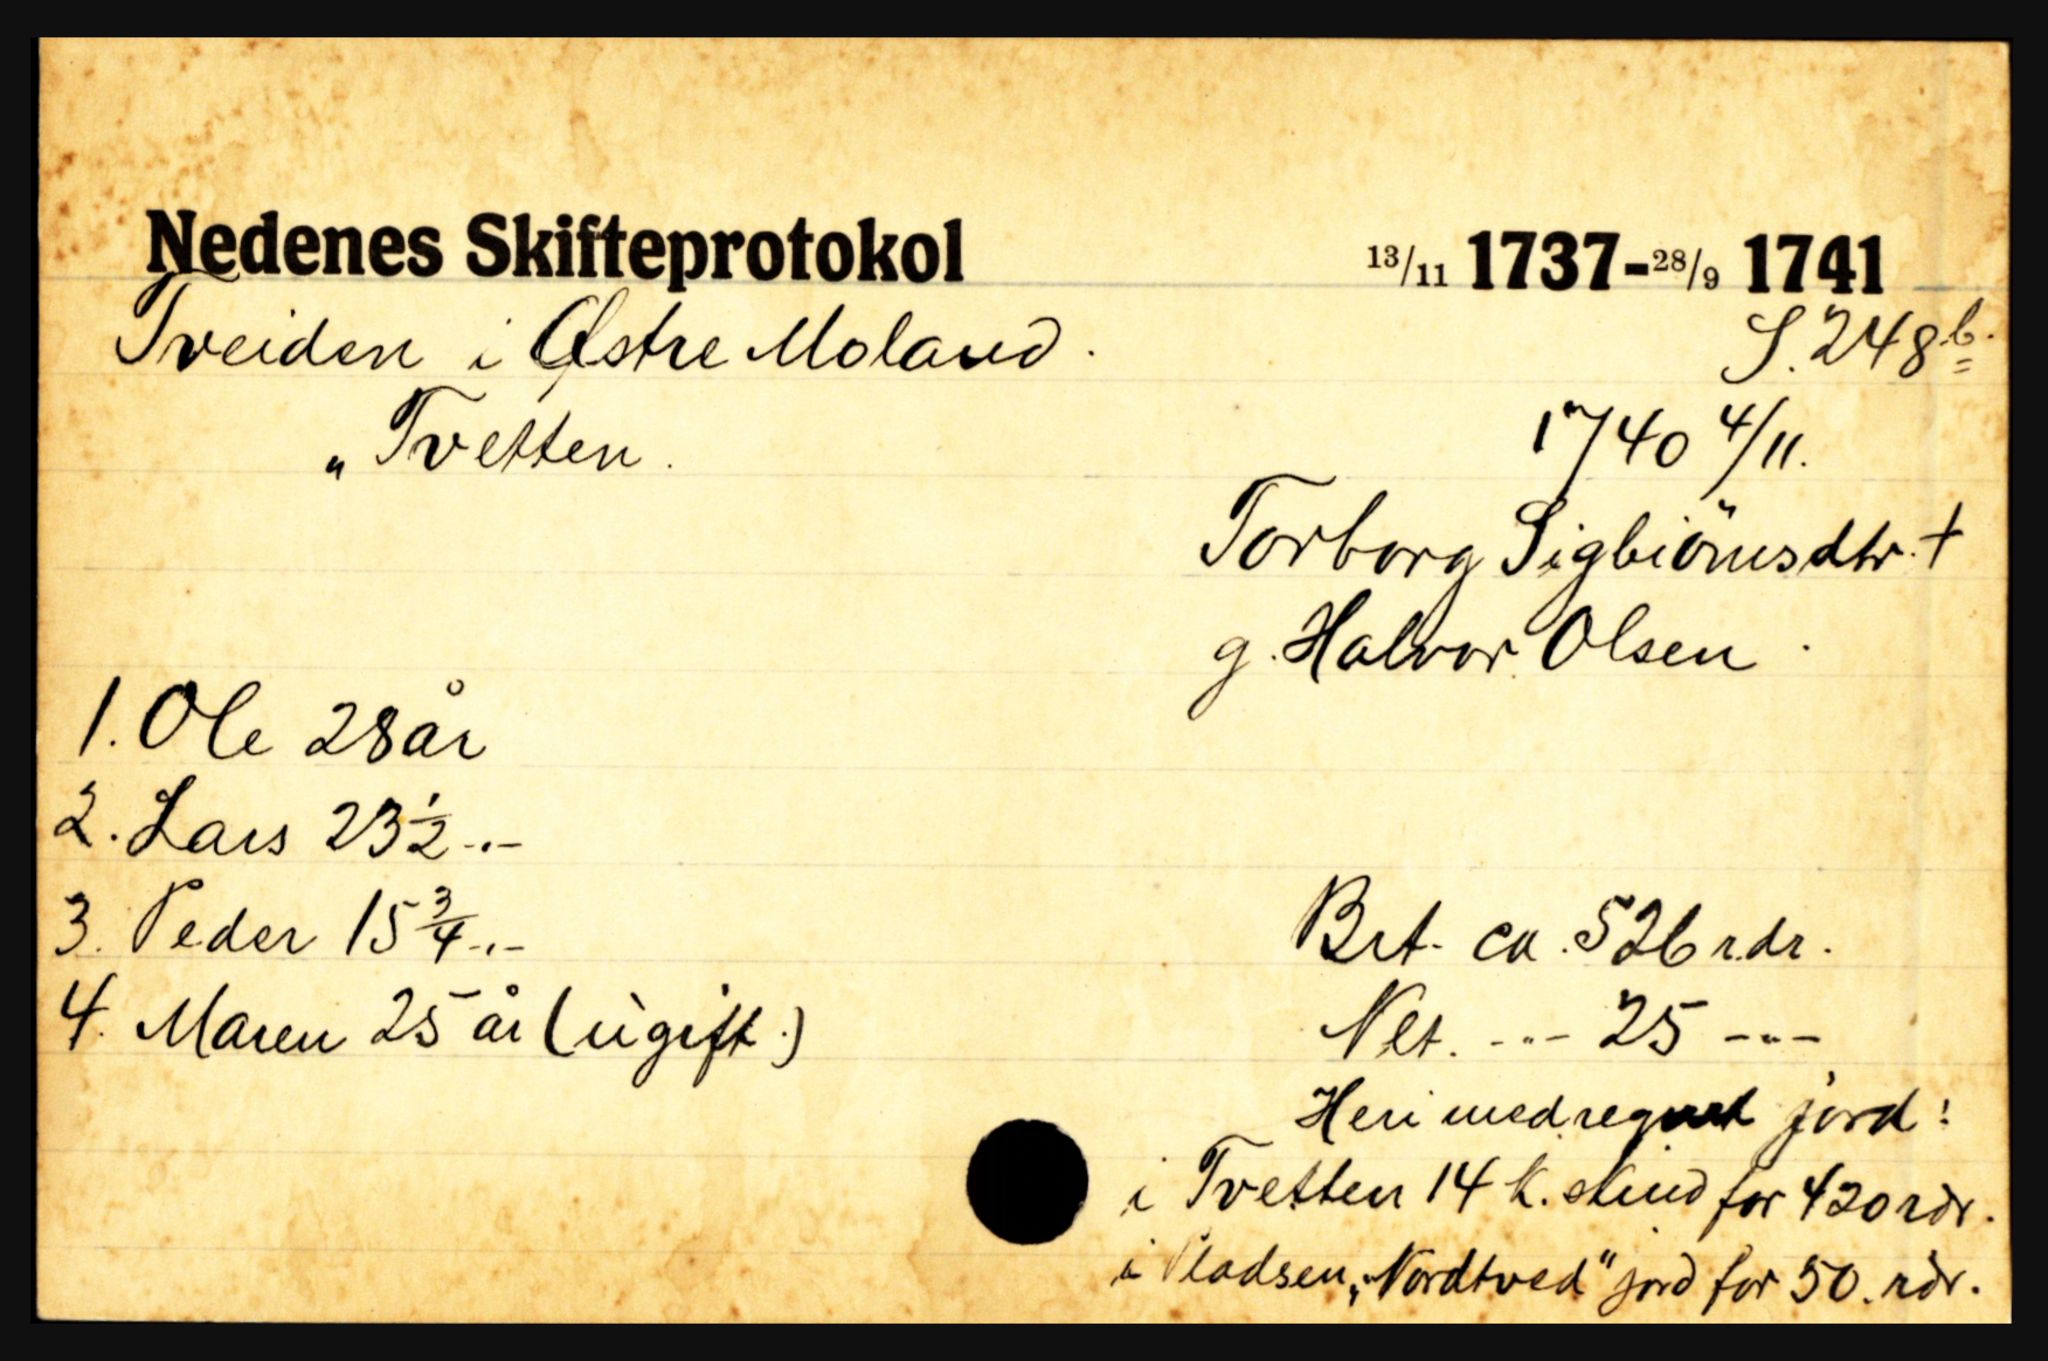 Nedenes Skifteprotokol 13/11 1737-28/9 1741
Tveiden i Østre Moland. S. 248 b.
„ Tvetten. 1740 4/11.
Torborg Sigbiörnsdtr. +
g. Halvor Olsen.
1. Ole 28 år
2. Lars 23 1/2 -"-
3. Peder 15 3/4 -"-
4. Maren 25 år (ugift.)
Brt. ca. 526 rdr.
Net. -"- 25 -"-
Heri medregnet jord:
i Tvetten 14 k. skind for 420 rdr.
i Pladsen „Nordtved" jord for 50. rdr.